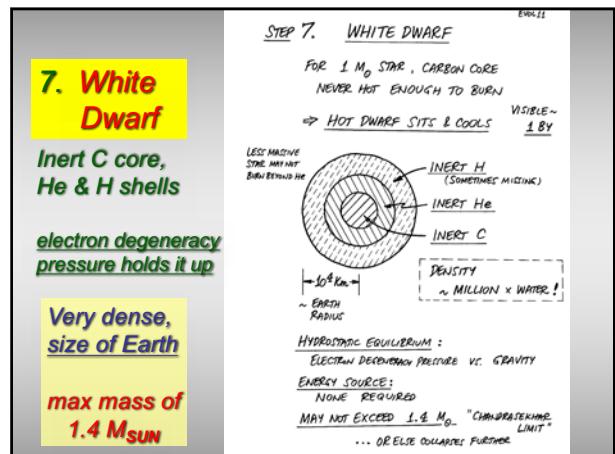 7. White
Dwarf
Inert C core,
He & H shells
electron degeneracy
pressure holds it up
Very dense,
size of Earth
max mass of
1.4 M_SUN
EVOL 11
STEP 7. WHITE DWARF
FOR 1 M⊙ STAR, CARBON CORE
NEVER HOT ENOUGH TO BURN
⇒ HOT DWARF SITS & COOLS
VISIBLE ~
1 BY
LESS MASSIVE
STAR MAY NOT
BURN BEYOND He
INERT H
(SOMETIMES MISSING)
INERT He
INERT C
10⁴ Km
~ EARTH
RADIUS
DENSITY
~ MILLION × WATER!
HYDROSTATIC EQUILIBRIUM :
ELECTRON DEGENERACY PRESSURE VS. GRAVITY
ENERGY SOURCE:
NONE REQUIRED
MAY NOT EXCEED 1.4 M⊙ "CHANDRASEKHAR
LIMIT"
... OR ELSE COLLAPSES FURTHER